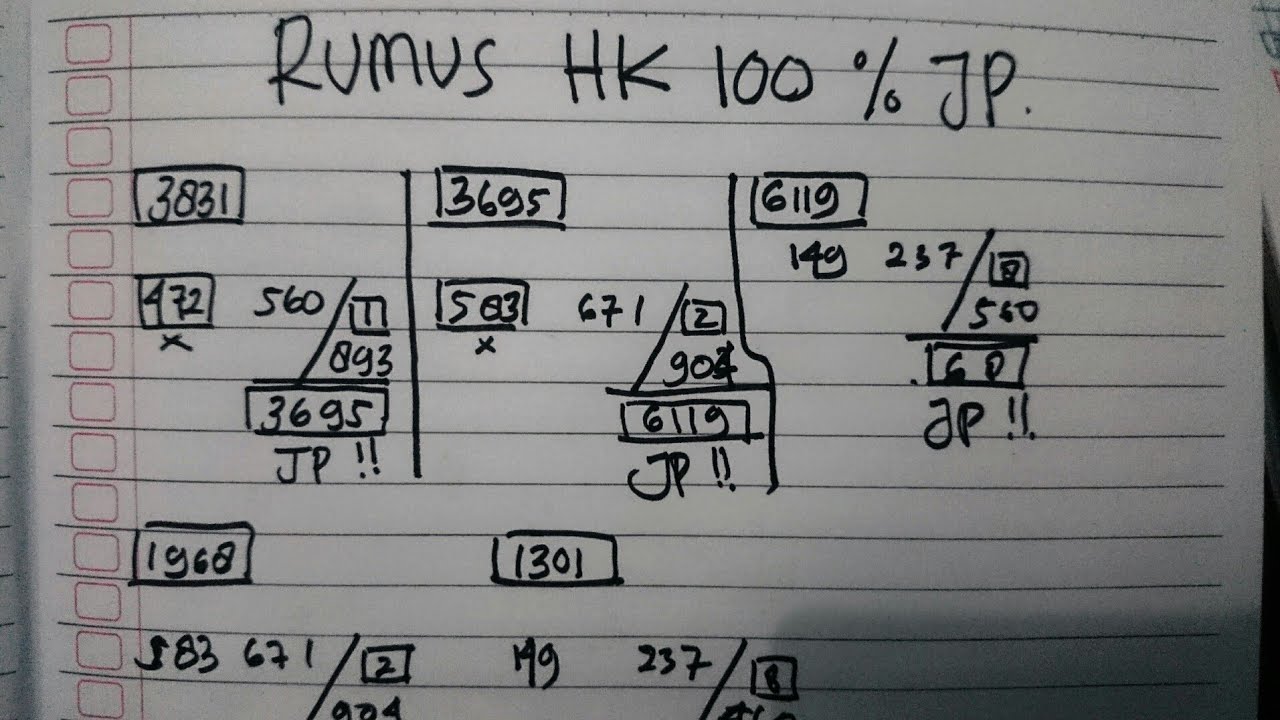 RUMUS HK 100 % JP.
3831 3695 6119
149 237 / 8
472 560 / 1 583 671 / 2 560
x 893 x 904
3695 6119 60
JP !! JP !! JP !!
1968 1301
583 671 / 2 149 237 / 8
904